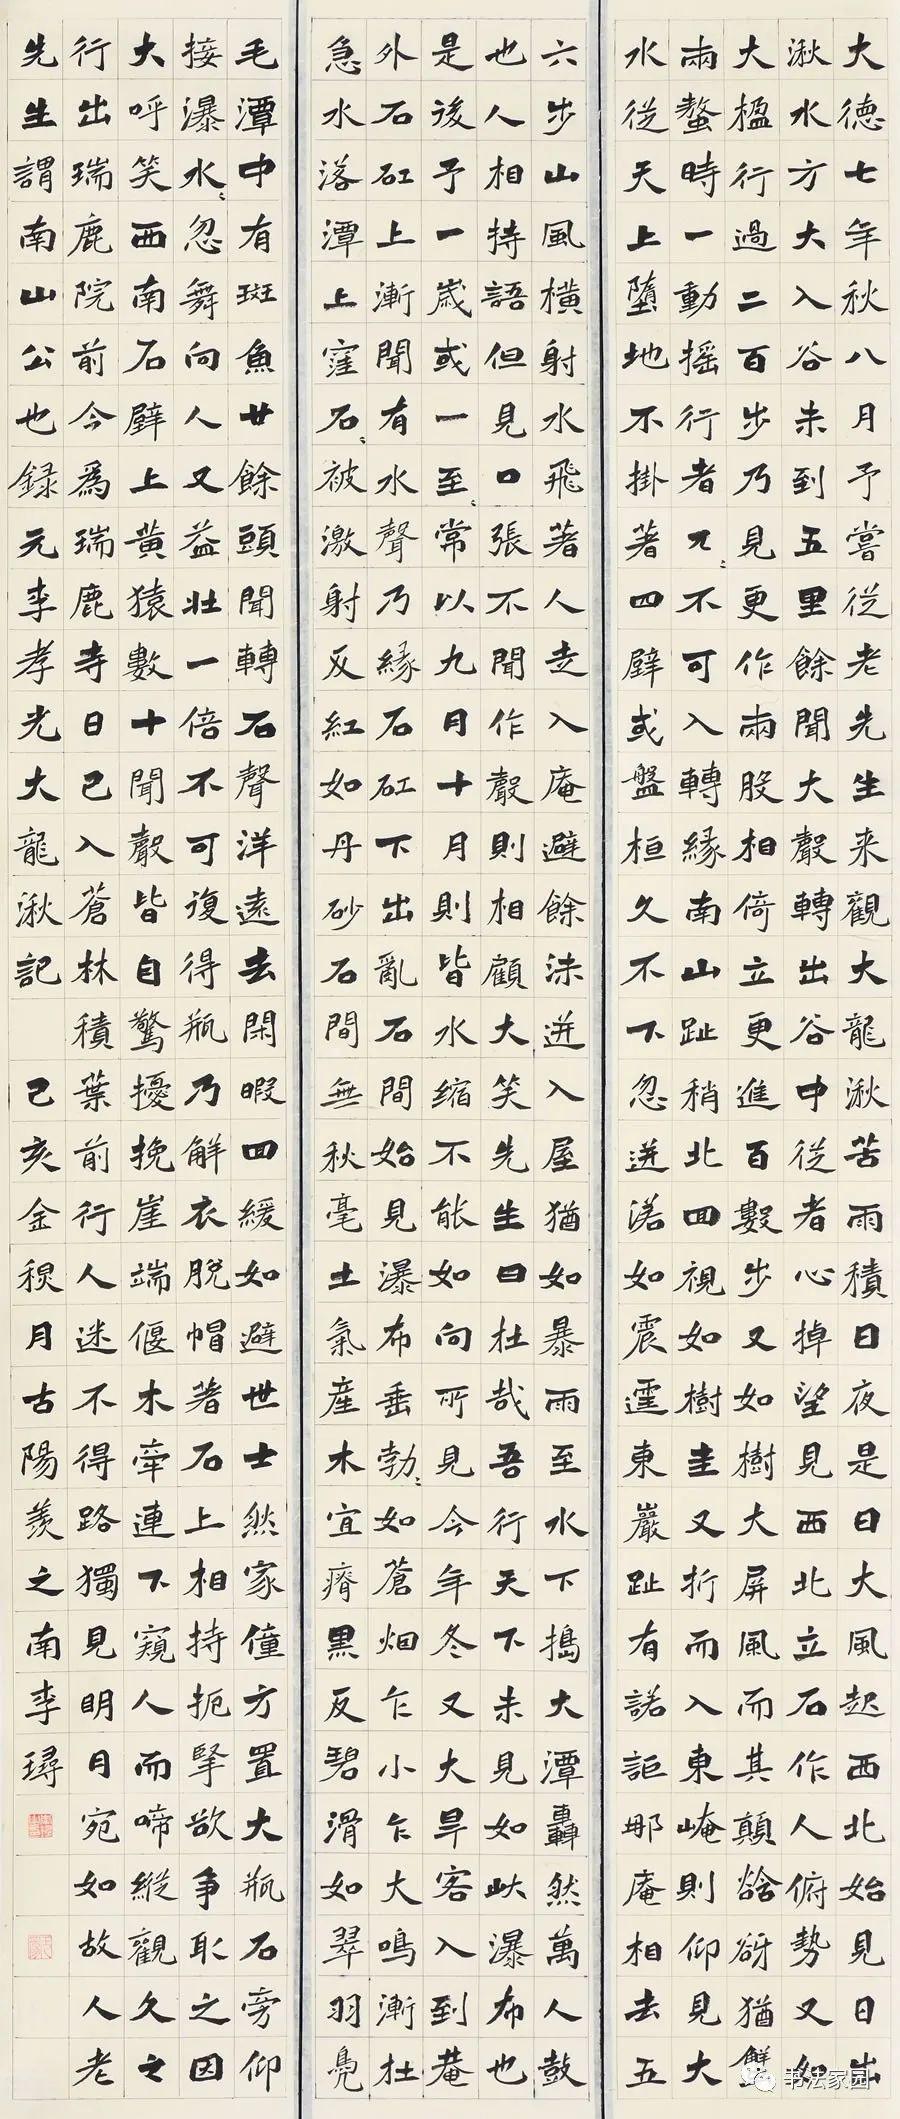 大德七年秋八月予嘗從老先生来觀大龍湫苦雨積日夜是日大風起西北始見日出
湫水方大入谷未到五里餘聞大聲轉出谷中從者心掉望見西北立石作人俯勢又如
大楹行過二百步乃見更作兩股相倚立更進百數步又如樹大屏風而其顛谽谺猶蟹
兩螯時一動摇行者兀〻不可入轉緣南山趾稍北回視如樹圭又折而入東崦則仰見大
水從天上墮地不掛著四壁或盤桓久不下忽迸落如震霆東巖趾有諾詎那庵相去五
六步山風横射水飛著人走入庵避餘沫迸入屋猶如暴雨至水下搗大潭轟然萬人鼓
也人相持語但見口張不聞作聲則相顧大笑先生曰壯哉吾行天下未見如此瀑布也
是後予一歲或一至常以九月十月則皆水缩不能如向所見今年冬又大旱客入到菴
外石矼上漸聞有水聲乃緣石矼下出亂石間始見瀑布垂勃〻如蒼烟乍小乍大鳴漸壯
急水落潭上窪石〻被激射反紅如丹砂石間無秋毫土氣産木宜瘠黑反碧滑如翠羽鳧
毛潭中有斑魚廿餘頭聞轉石聲洋遠去閑暇回緩如避世士然家僮方置大瓶石旁仰
接瀑水〻忽舞向人又益壯一倍不可復得瓶乃解衣脱帽著石上相持扼掔欲争取之因
大呼笑西南石壁上黄猿數十聞聲皆自驚擾挽崖端偃木牽連下窺人而啼縱觀久之
行出瑞鹿院前今為瑞鹿寺日已入蒼林積葉前行人迷不得路獨見明月宛如故人老
先生謂南山公也録元李孝光大龍湫記 己亥金秋月古陽羨之南李璕
书法家园